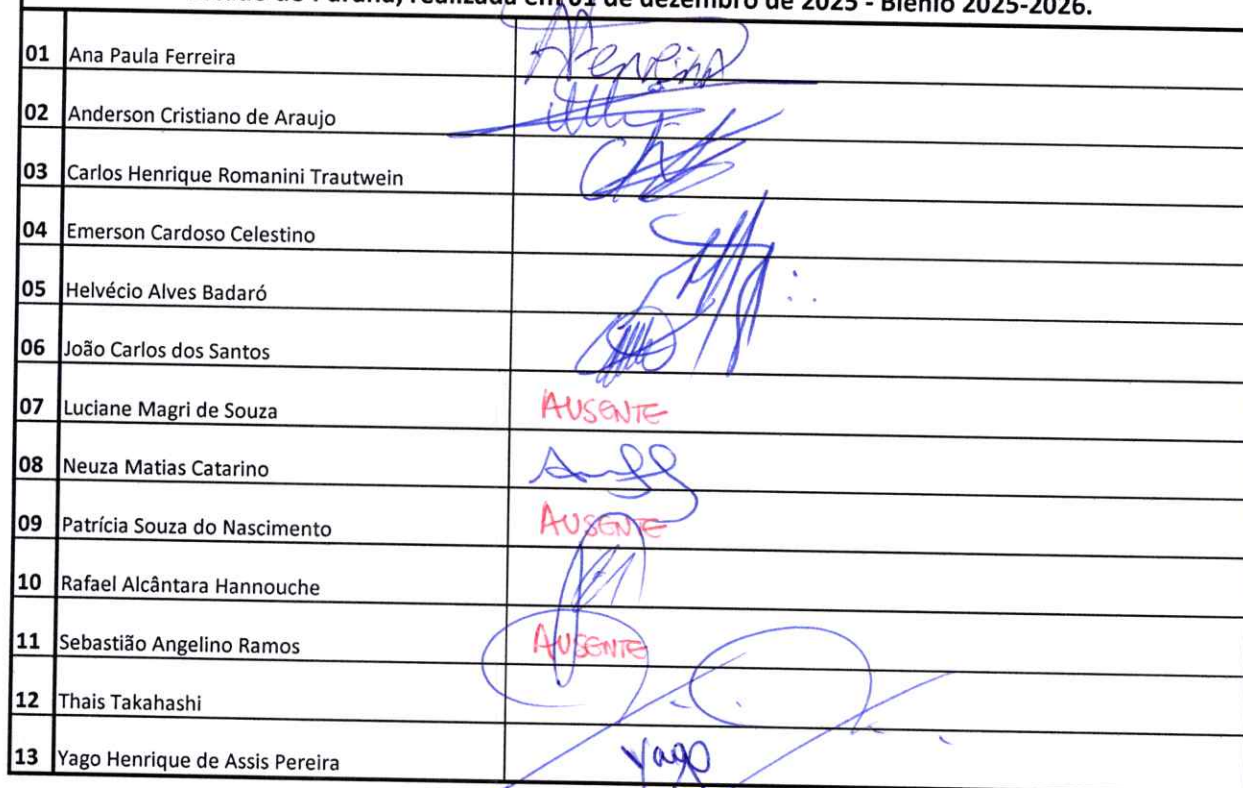 do Paraná, realizada em 01 de dezembro de 2025 - Biênio 2025-2026.
01 Ana Paula Ferreira AFerreira
02 Anderson Cristiano de Araujo
03 Carlos Henrique Romanini Trautwein
04 Emerson Cardoso Celestino
05 Helvécio Alves Badaró
06 João Carlos dos Santos
07 Luciane Magri de Souza AUSENTE
08 Neuza Matias Catarino
09 Patrícia Souza do Nascimento AUSENTE
10 Rafael Alcântara Hannouche
11 Sebastião Angelino Ramos AUSENTE
12 Thais Takahashi
13 Yago Henrique de Assis Pereira Yago